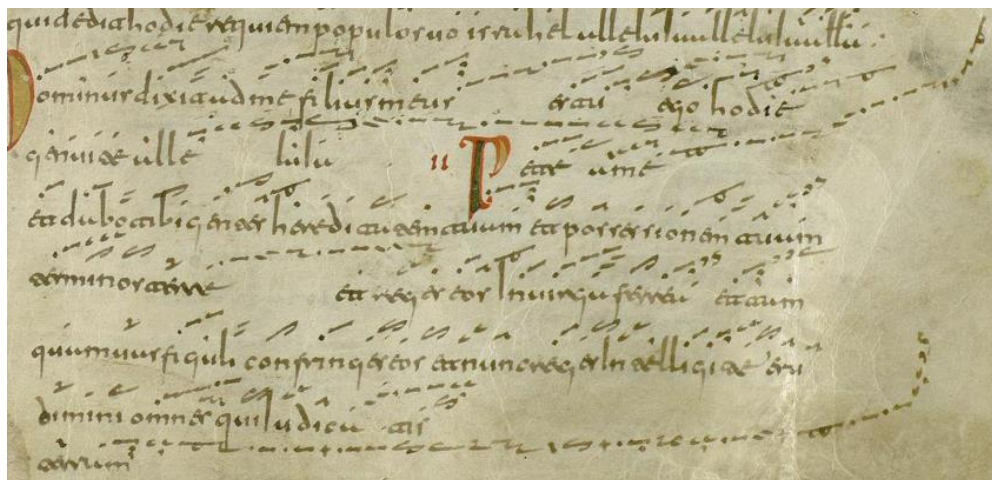 qui dedit hodie requiem populo suo israhel alleluia alleluia
Dominus dixit ad me filius meus es tu ego hodie
genui te alle luia II Pete a me
et dabo tibi gentes hereditatem tuam et possessionem tuam
terminos terre et reges eos In uirga ferrea et tam
quam uas figuli confringes eos et nunc reges Intelligite eru
dimini omnes qui Iudica tis
terram